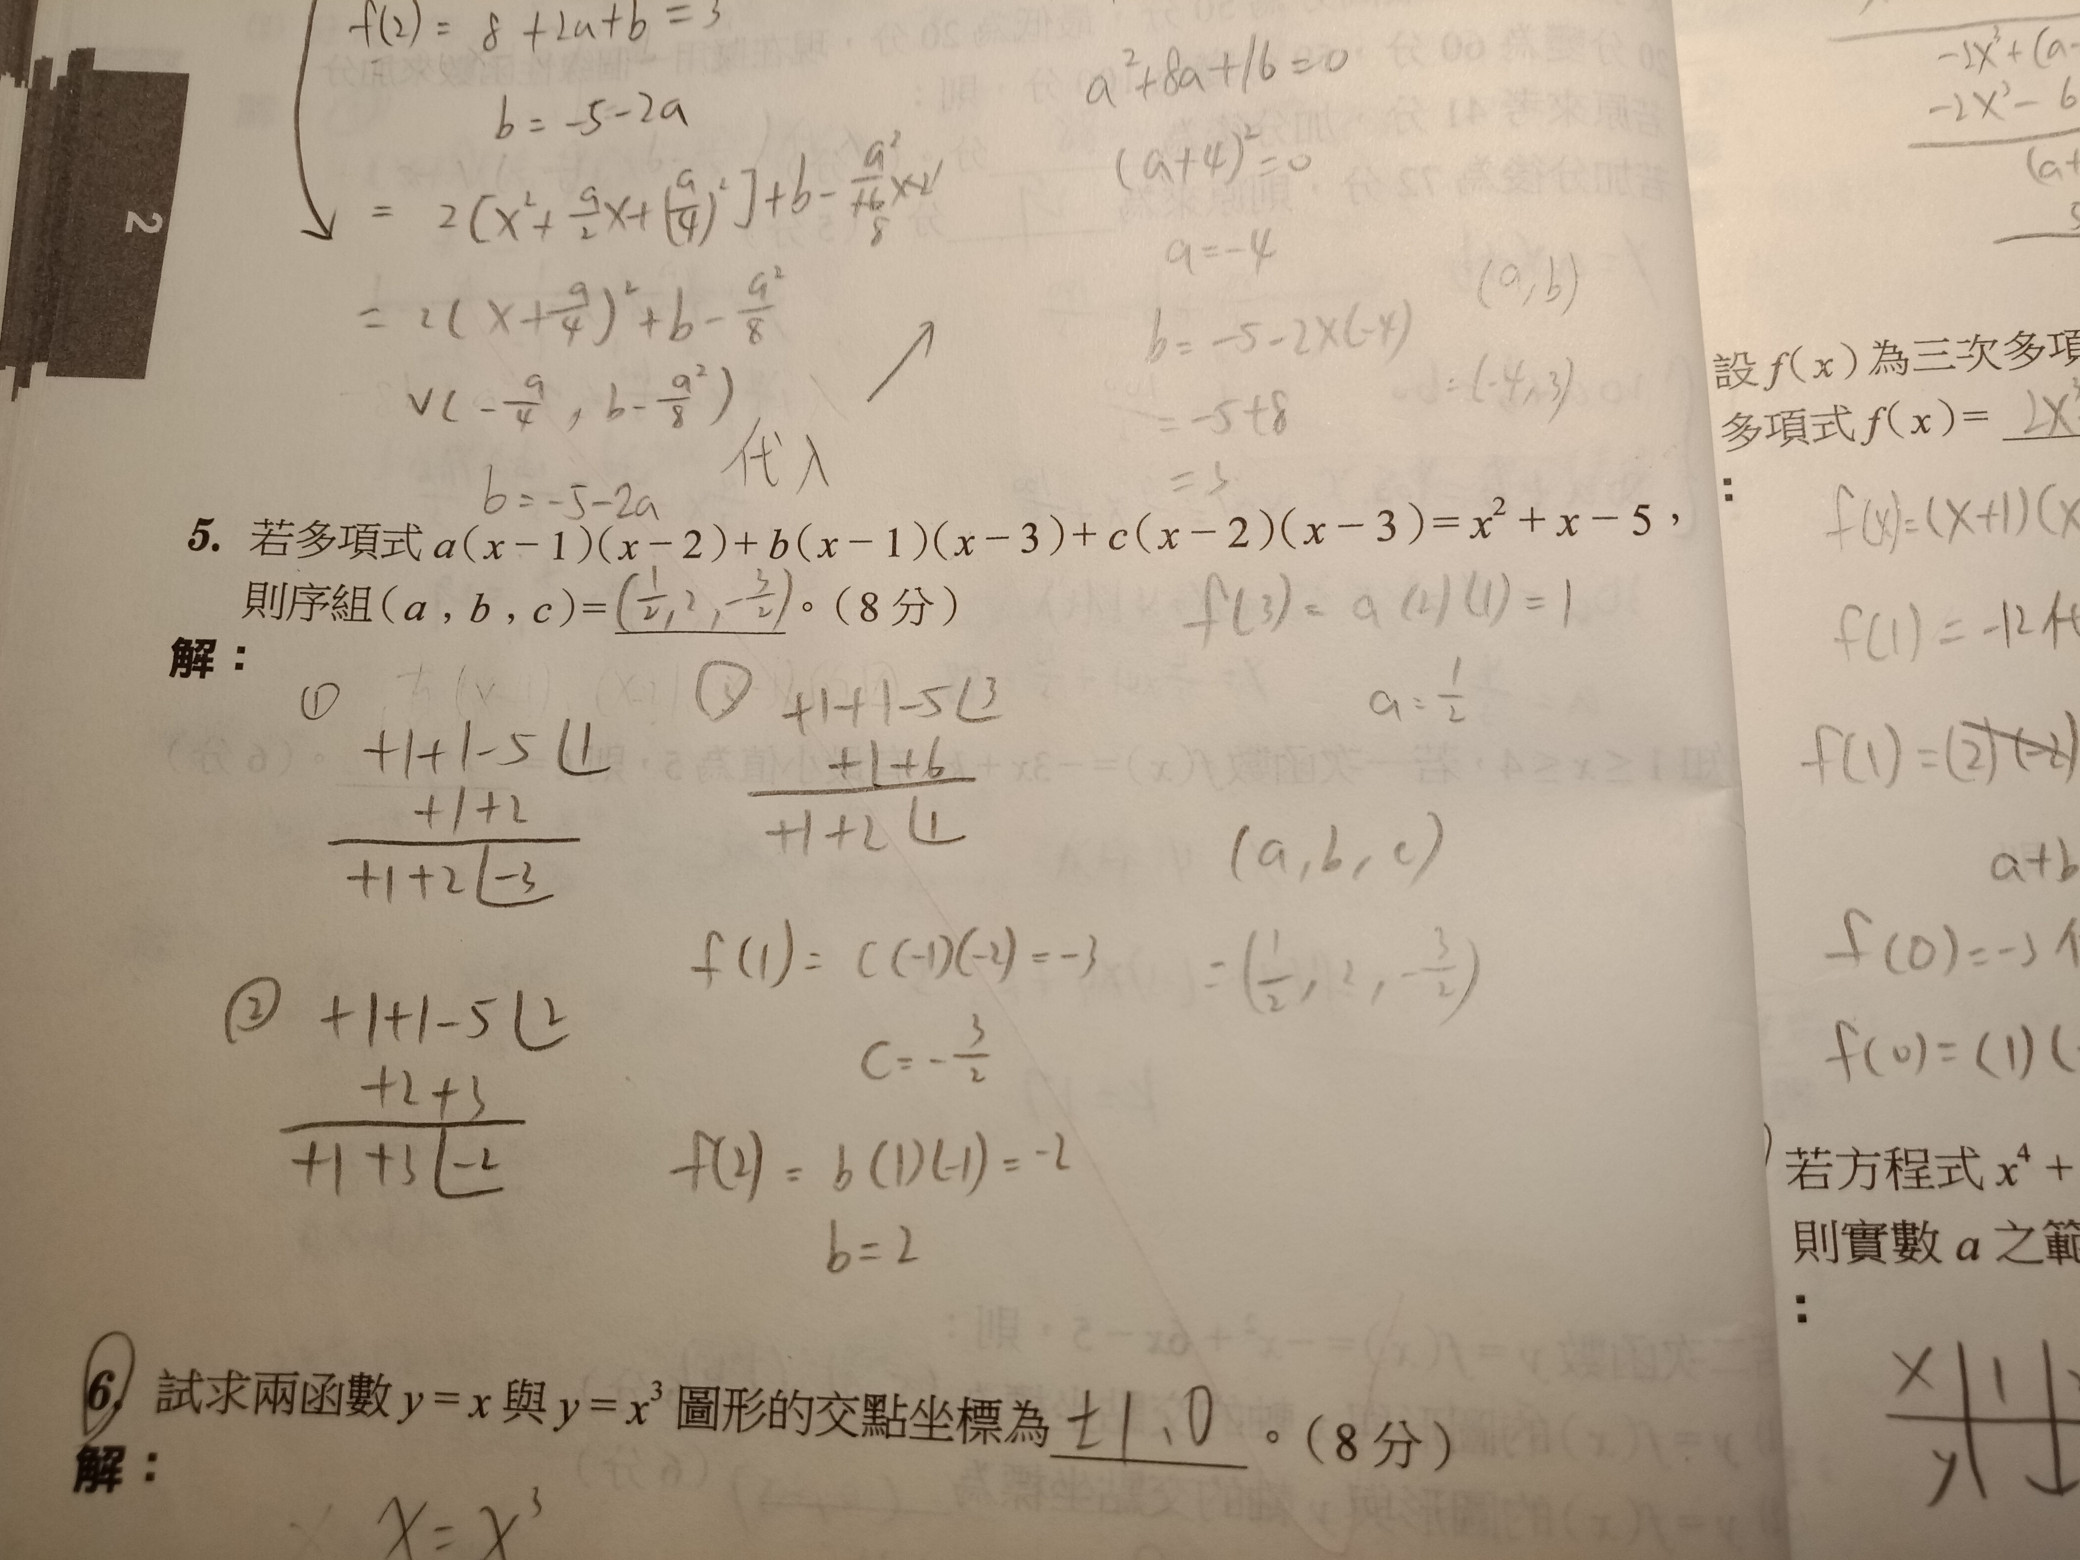 f(2) = 8 + 2a + b = 3
b = -5 - 2a
= 2[x² + a/2 x + (a/4)²] + b - a²/16 × 2
8
= 2(x + a/4)² + b - a²/8
V(-a/4, b - a²/8)
代入
b = -5 - 2a
a² + 8a + 16 = 0
(a + 4)² = 0
a = -4
b = -5 - 2×(-4)
= -5 + 8
= 3
(a, b)
= (-4, 3)
2
5. 若多項式 a(x-1)(x-2)+b(x-1)(x-3)+c(x-2)(x-3)=x²+x-5,
則序組(a, b, c)=(1/2, 2, -3/2)。(8分)
解:
①
+1+1-5 1
+1+2
+1+2 -3
② +1+1-5 2
+2+3
+1+3 -2
+1+1-5 3
+1+6
+1+2 1
f(1) = c(-1)(-2) = -3
c = -3/2
f(2) = b(1)(-1) = -2
b = 2
f(3) = a(2)(1) = 1
a = 1/2
(a, b, c)
= (1/2, 2, -3/2)
6. 試求兩函數 y=x 與 y=x³ 圖形的交點坐標為 ±1、0 。(8分)
解:
x = x³
-2x³+(a-
-2x³- 6
(a+
設 f(x) 為三次多項
多項式 f(x)= 2x³
:
f(x)=(x+1)(x
f(1) = -12
f(1) = (2)(-2)
a+b
f(0) = -3
f(0) = (1)(-
若方程式 x⁴ +
則實數 a 之範
:
x 1
y